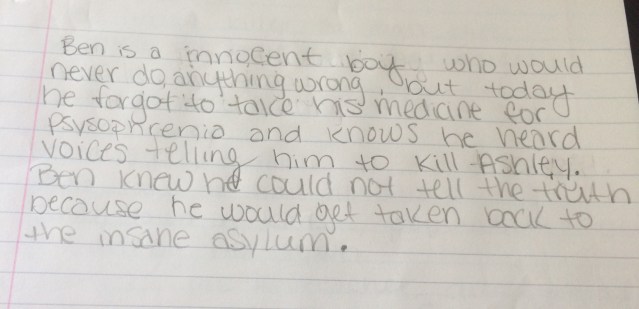 Ben is a innocent boy who would
never do anything wrong, but today
he forgot to take his medicine for
psysophrenia and knows he heard
voices telling him to kill Ashley.
Ben knew he could not tell the truth
because he would get taken back to
the insane asylum.